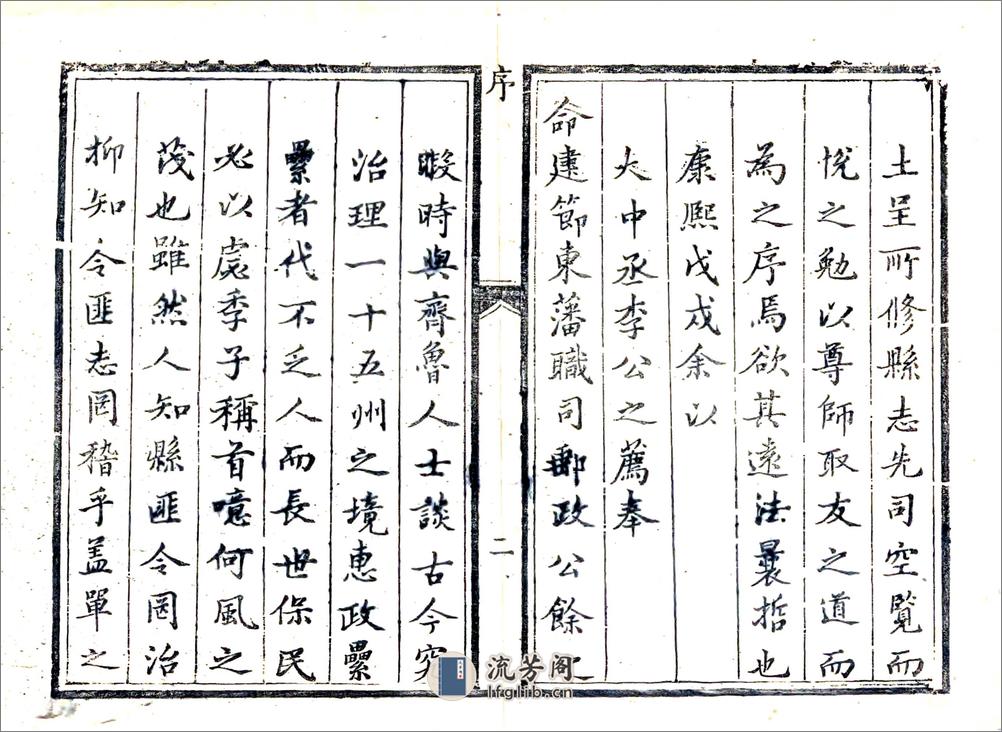 土呈所修縣志先司空覽而
悅之勉以尊師取友之道而
為之序焉欲其遠法曩哲也
康熙戊戌余以
大中丞李公之薦奉
命建節東藩職司郵政公餘之
序
二
暇時與齊魯人士談古今究
治理一十五州之境惠政纍
纍者代不乏人而長世保民
必以處季子稱首噫何風之
茂也雖然人知縣匪令罔治
抑知令匪志罔稽乎盖單之
流芳阁
lfglib.cn